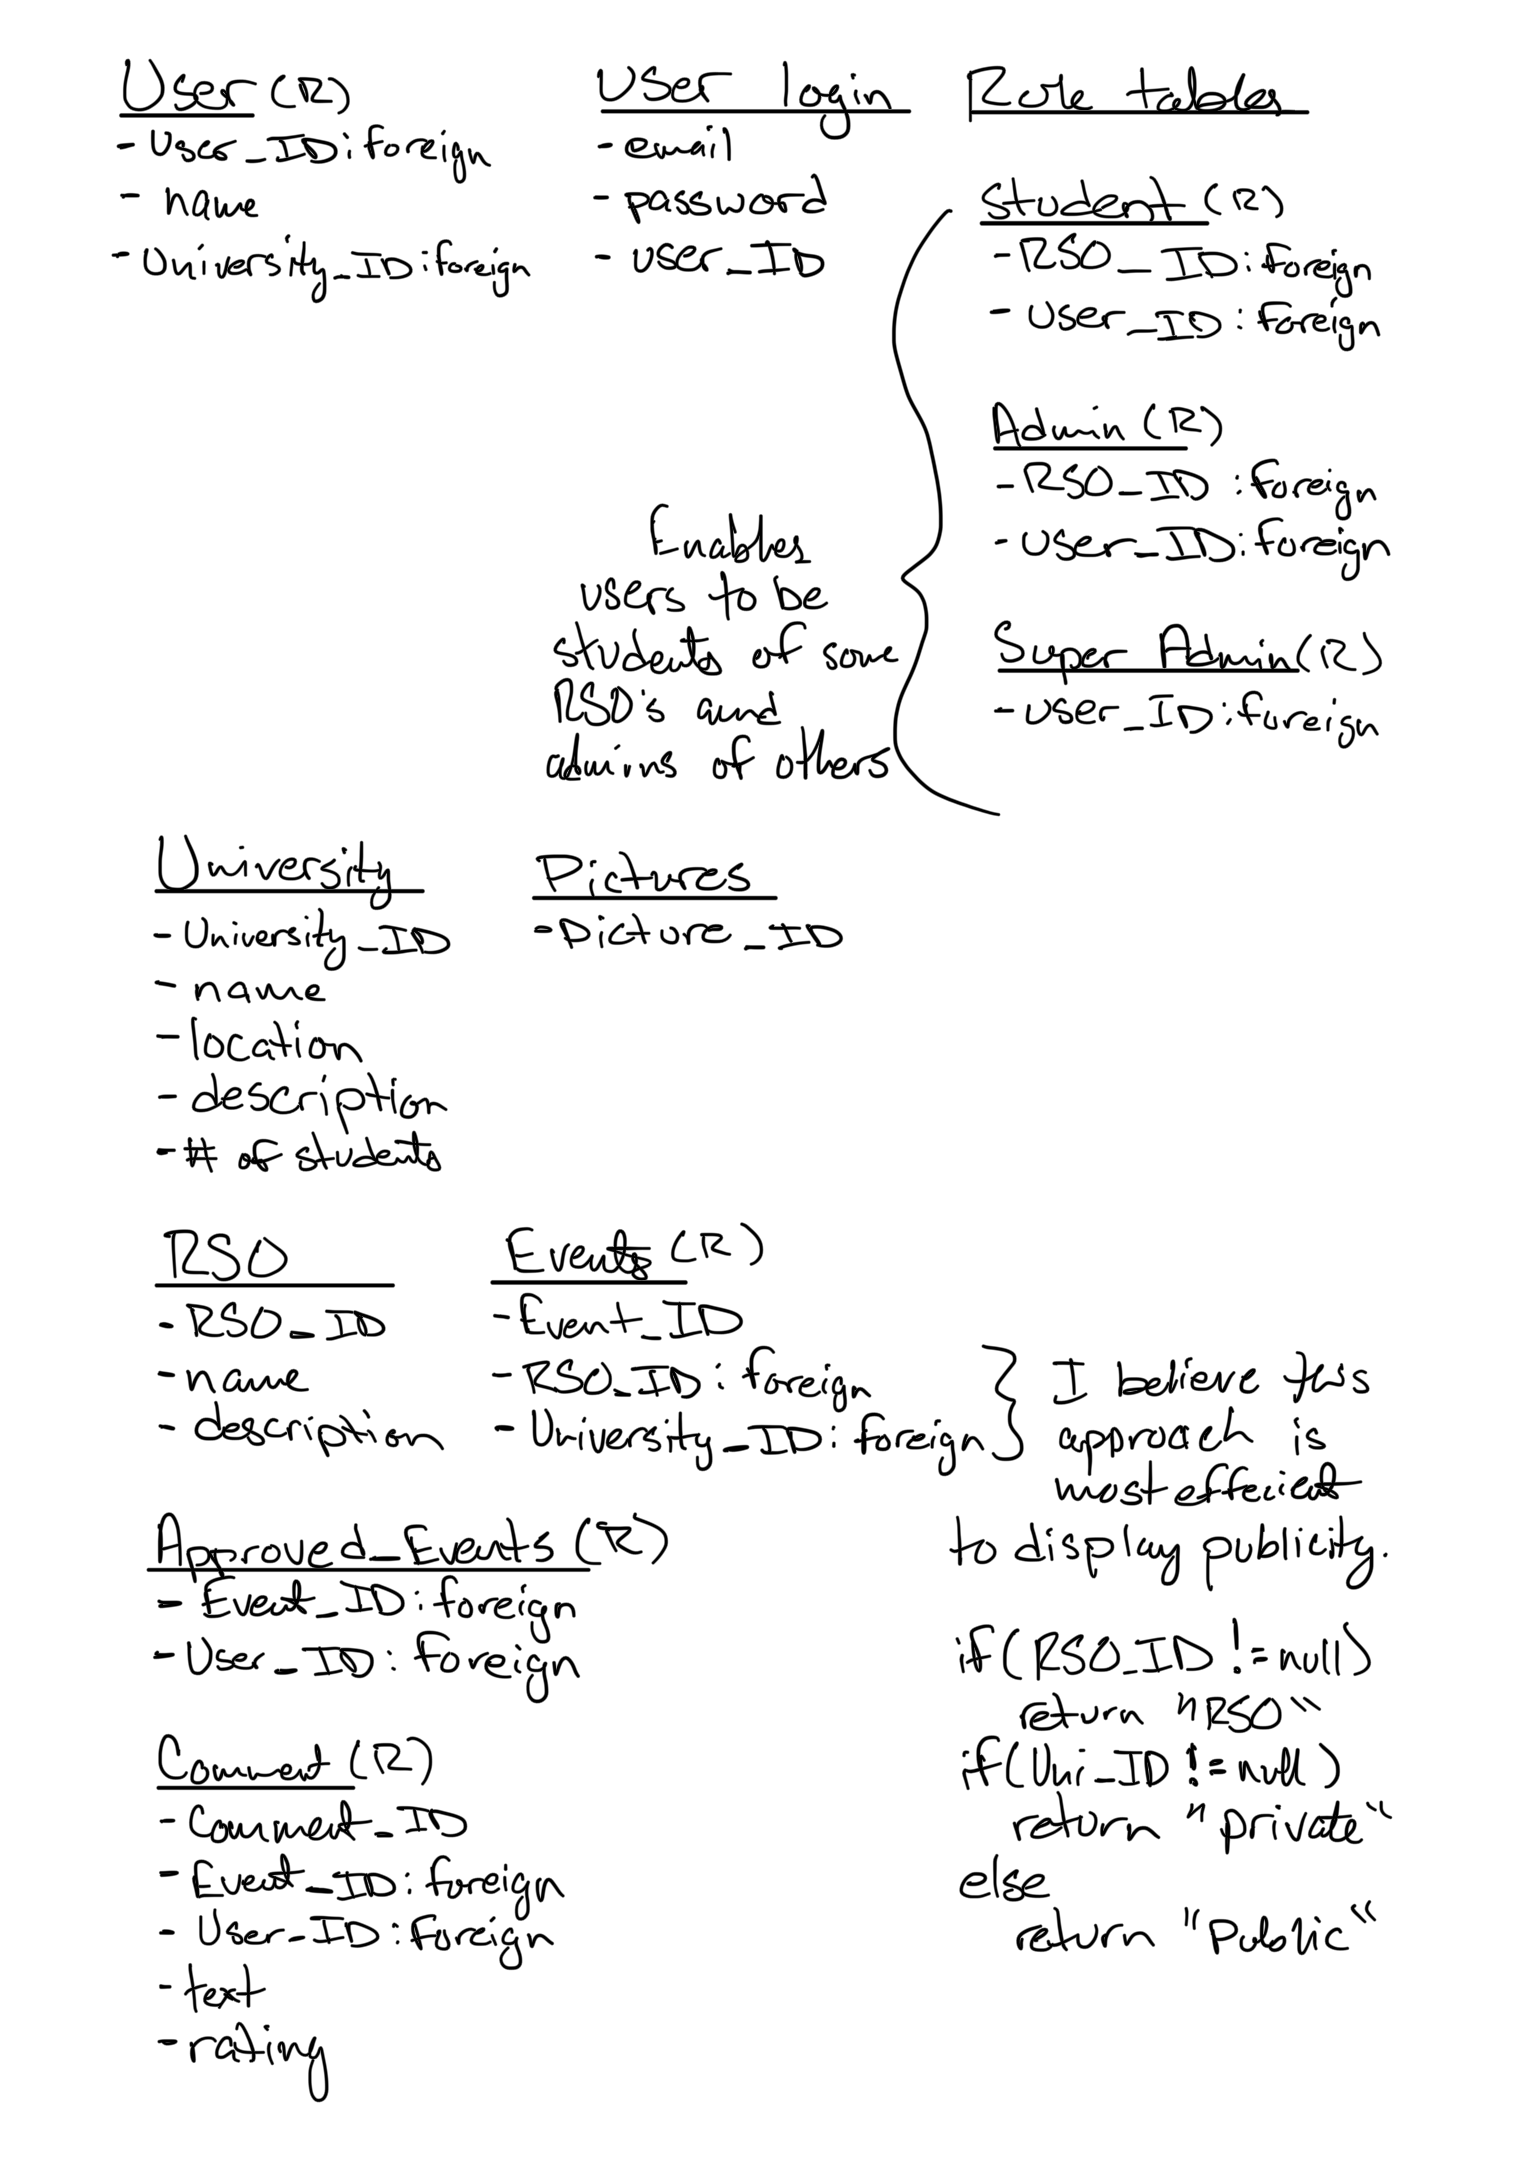 User (R)
- User_ID: foreign
- name
- University_ID: foreign
User login
- email
- password
- user_ID
Role tables
Student (R)
- RSO_ID: foreign
- User_ID: foreign
Admin (R)
- RSO_ID: foreign
- User_ID: foreign
Super Admin (R)
- user_ID: foreign
Enables
users to be
students of some
RSO's and
admins of others
University
- University_ID
- name
- location
- description
- # of students
Pictures
- Picture_ID
RSO
- RSO_ID
- name
- description
Events (R)
- Event_ID
- RSO_ID: foreign
- University_ID: foreign
I believe this
approach is
most effecient
to display publicity.
if (RSO_ID != null)
return "RSO"
if (Uni_ID != null)
return "private"
else
return "Public"
Approved_Events (R)
- Event_ID: foreign
- User_ID: foreign
Comment (R)
- Comment_ID
- Event_ID: foreign
- User_ID: foreign
- text
- rating